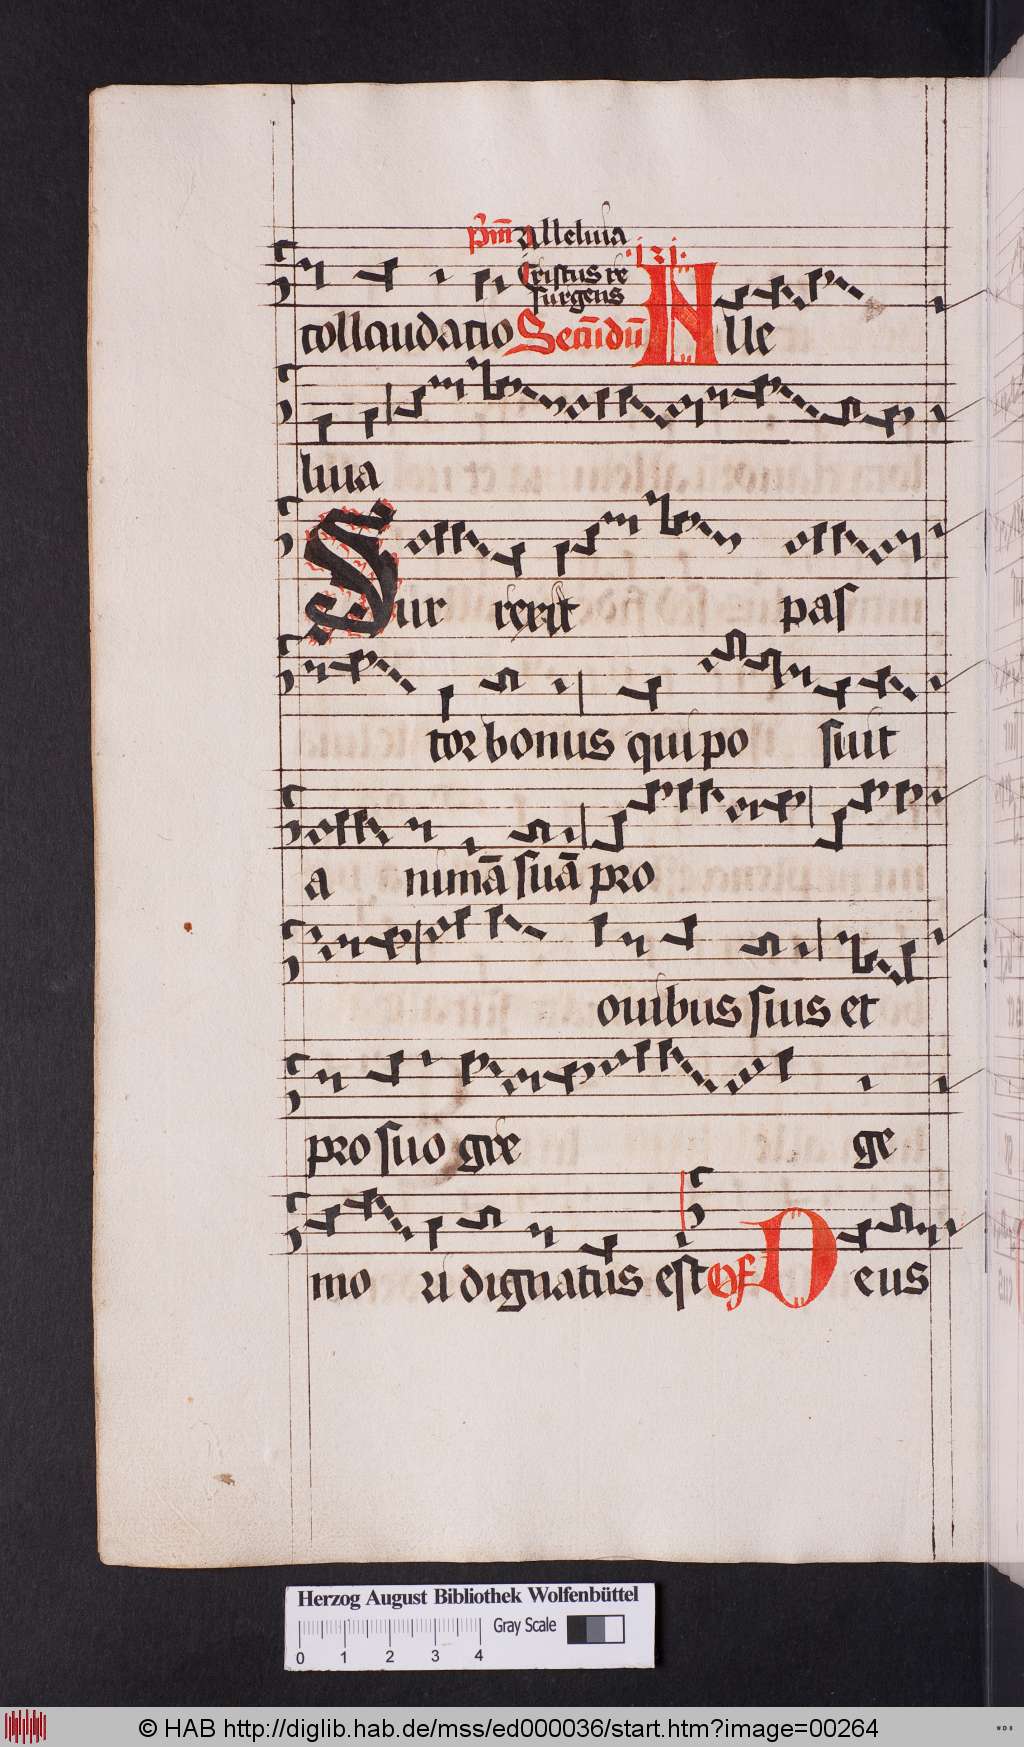 Pm̄ alleluia
Cristus re
surgens
·131·
collaudatio Secūdū Alle
luia
Surrexit pas
tor bonus qui po suit
a nimā suā pro
ovibus suis et
pro suo gre ge
mo ri dignatus est Of Deus
Herzog August Bibliothek Wolfenbüttel
Gray Scale
0 1 2 3 4
© HAB http://diglib.hab.de/mss/ed000036/start.htm?image=00264